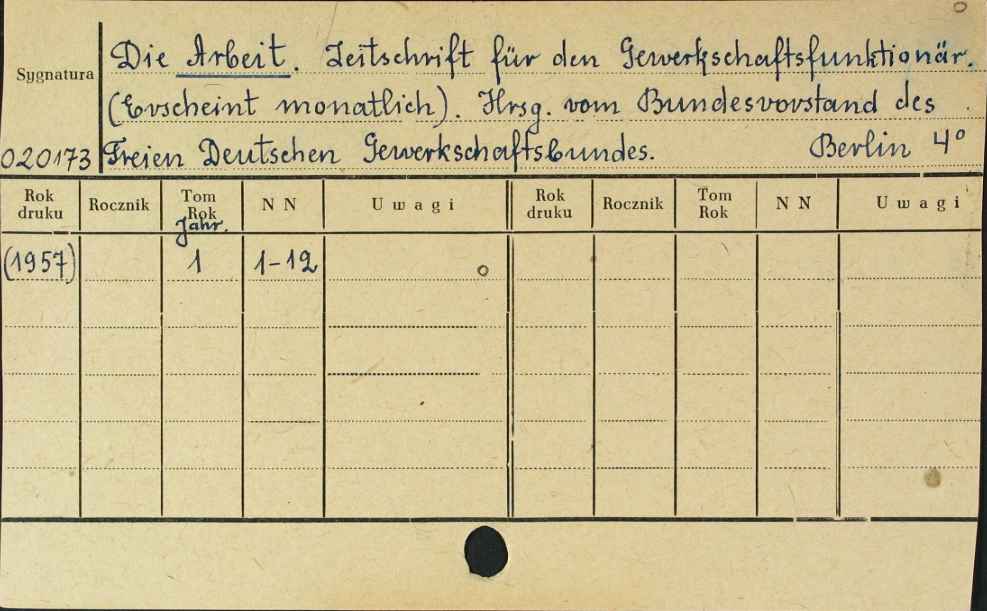 Die Arbeit. Zeitschrift für den Gewerkschaftsfunktionär.
Sygnatura
(Erscheint monatlich). Hrsg. vom Bundesvorstand des
020173 Freien Deutschen Gewerkschaftsbundes. Berlin 4°
Rok druku Rocznik Tom Rok Jahr. N N Uwagi Rok druku Rocznik Tom Rok N N Uwagi
(1957) 1 1-12